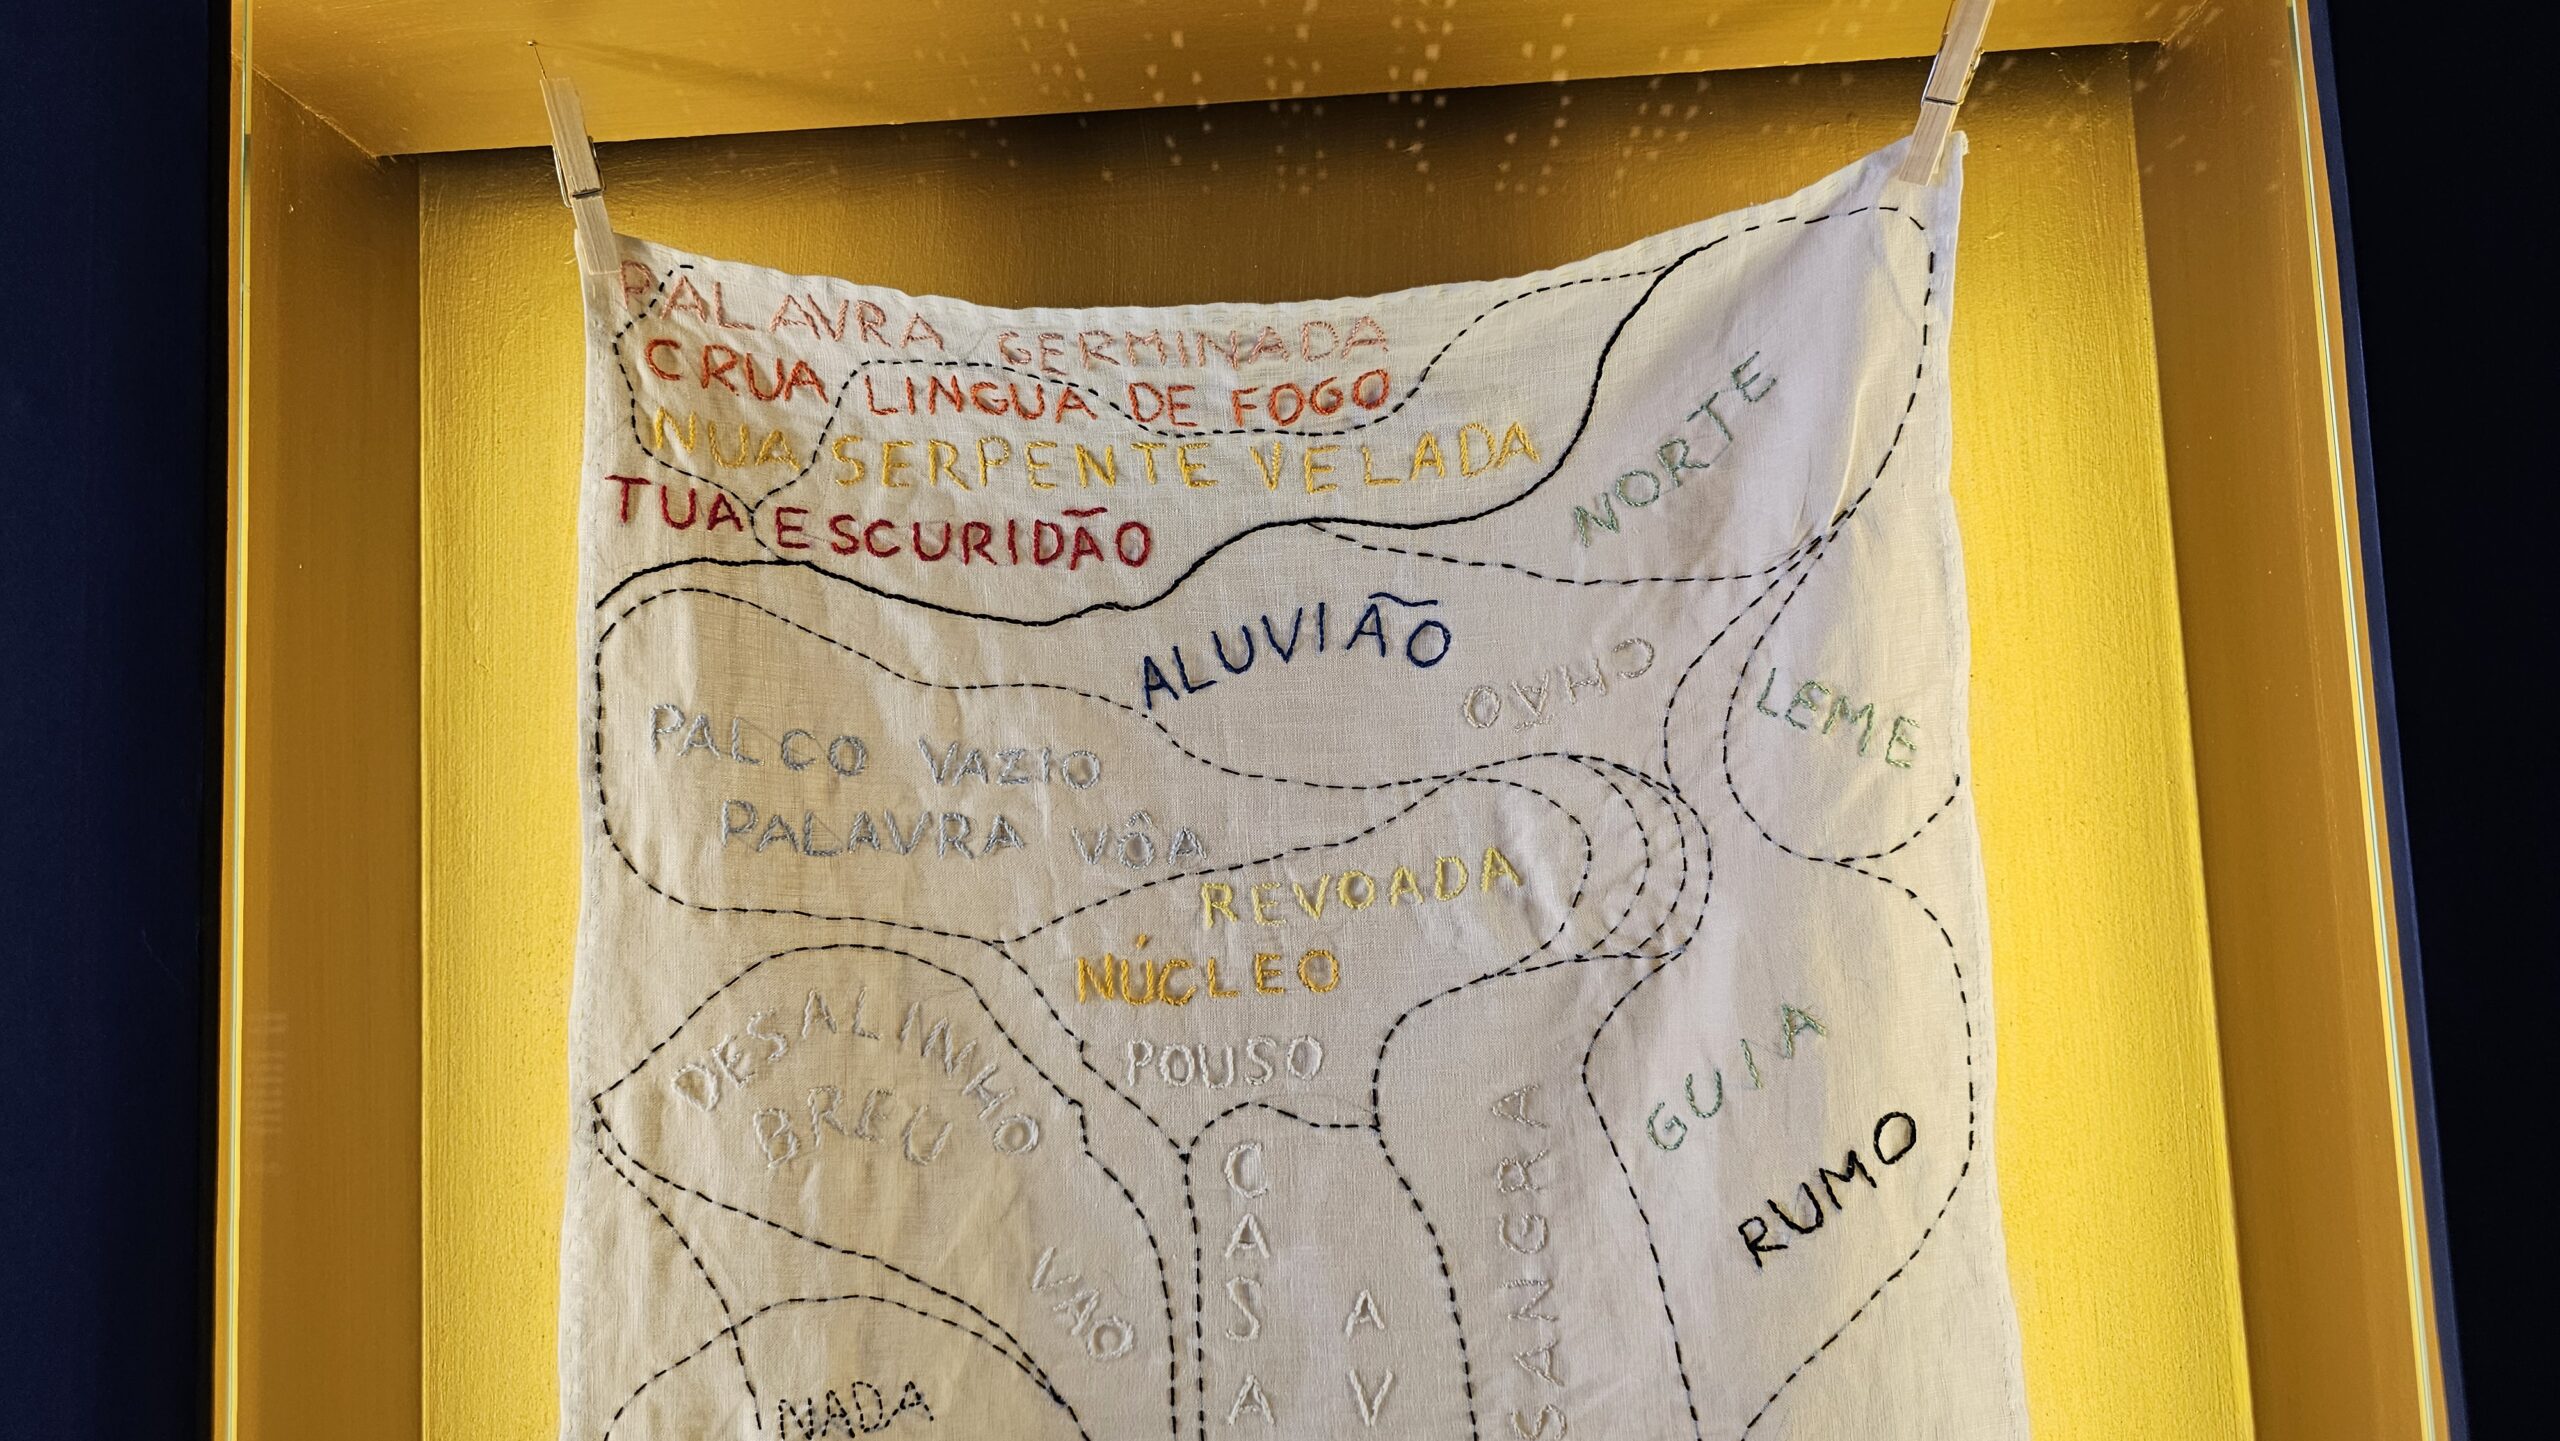 PALAVRA GERMINADA
CRUA LINGUA DE FOGO
NUA SERPENTE VELADA
TUA ESCURIDÃO
NORTE
ALUVIÃO
CHÃO
LEME
PALCO VAZIO
PALAVRA VÔA
REVOADA
NÚCLEO
POUSO
DESALINHO
BREU
VAO
GUIA
RUMO
CASA
SANGRA
NADA